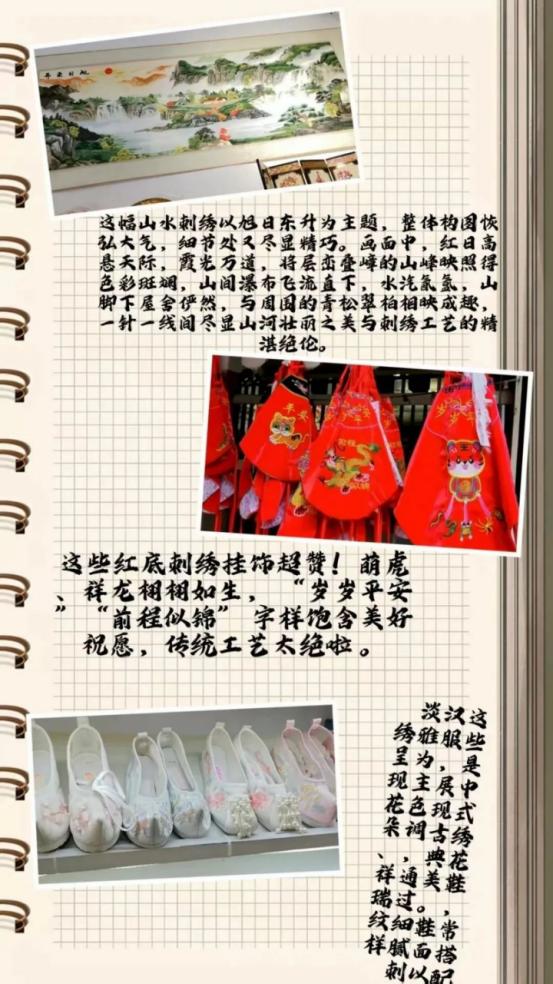 旭日东升
这幅山水刺绣以旭日东升为主题，整体构图恢
弘大气，细节处又尽显精巧。画面中，红日高
悬天际，霞光万道，将层峦叠嶂的山峰映照得
色彩斑斓，山间瀑布飞流直下，水汽氤氲，山
脚下屋舍俨然，与周围的青松翠柏相映成趣，
一针一线间尽显山河壮丽之美与刺绣工艺的精
湛绝伦。
平安
这些红底刺绣挂饰超赞！萌虎
、祥龙栩栩如生，“岁岁平安
”“前程似锦”字样饱含美好
祝愿，传统工艺太绝啦。
这些是中式绣花鞋，常搭配
汉服，展现古典美。鞋面以
淡雅为主色调，通过细腻刺
绣呈现花朵、祥瑞纹样